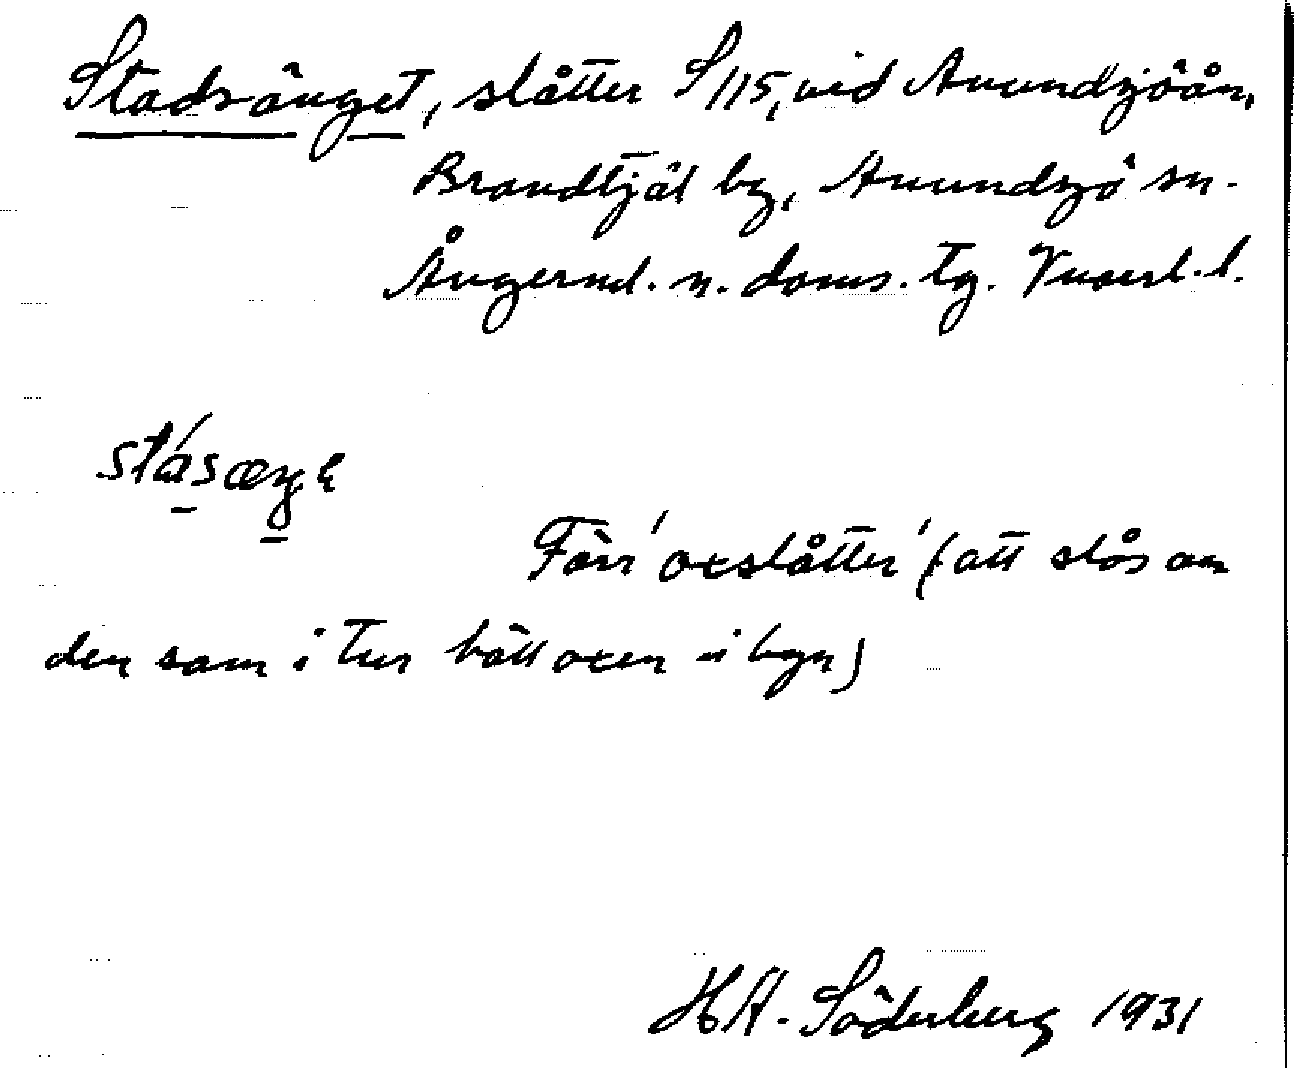 Stadsänget, slåtter S/15, vid Anundsjöån,
Brandtjäl by, Anundsjö sn.
Ångermd. n. doms. tg. Vnorrl. l.
stásæŋɛ
Förr 'oxslåtter' (att slås av
den som i tur höll oxen i byn)
HA. Söderberg 1931